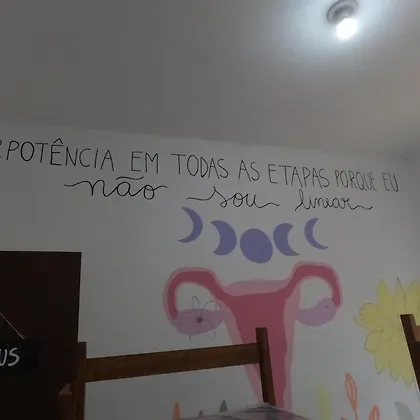 POTÊNCIA EM TODAS AS ETAPAS PORQUE EU
não sou linear
US